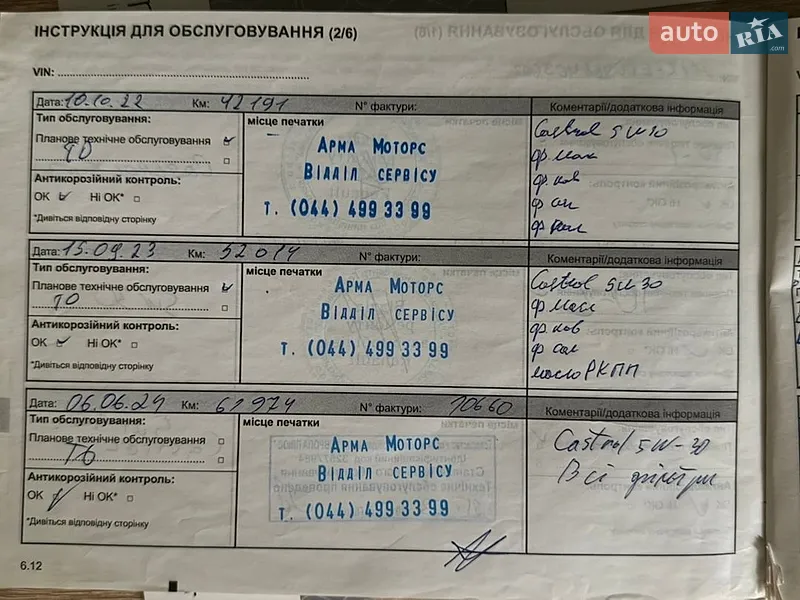 ІНСТРУКЦІЯ ДЛЯ ОБСЛУГОВУВАННЯ (2/6)
auto RIA .com
VIN:
Дата: 10.10.22 Км: 42191 N° фактури: Коментарії/додаткова інформація
Тип обслуговування: місце печатки
Castrol 5W30
Планове технічне обслуговування
ТО
Арма Моторс
Відділ сервісу
т. (044) 499 33 99
ф. мас
ф. пов
ф. сал
Антикорозійний контроль:
ОК Ні ОК*
*Дивіться відповідну сторінку
Дата: 15.09.23 Км: 52014 N° фактури: Коментарії/додаткова інформація
Тип обслуговування: місце печатки
Castrol 5W30
Планове технічне обслуговування
ТО
Арма Моторс
Відділ сервісу
т. (044) 499 33 99
ф масл
ф пов
ф сал
масло РКПП
Антикорозійний контроль:
ОК Ні ОК*
*Дивіться відповідну сторінку
Дата: 06.06.24 Км: 61974 N° фактури: 10660 Коментарії/додаткова інформація
Тип обслуговування: місце печатки
Castrol 5W-30
Всі фільтри
Планове технічне обслуговування
ТО
Арма Моторс
Відділ сервісу
т. (044) 499 33 99
Антикорозійний контроль:
ОК Ні ОК*
*Дивіться відповідну сторінку
6.12